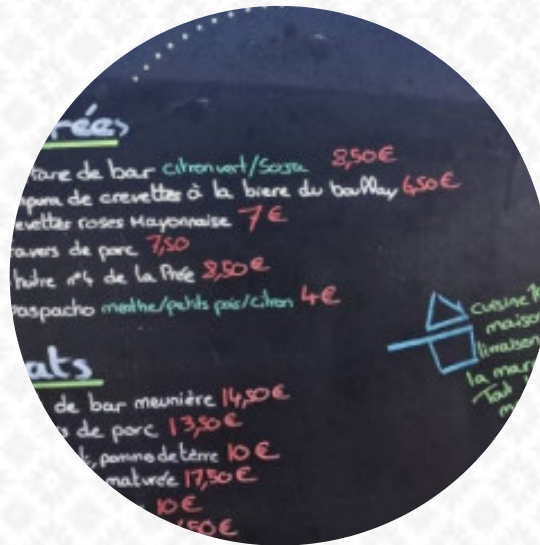 rées
tare de bar citron vert/Soja 8,50€
pura de crevettes à la biere du bouffay 6,50€
evettes roses Mayonnaise 7€
avers de porc 7,50
huitre n°4 de la Prée 8,50€
aspacho menthe/petits pois/citron 4€
ats
de bar meunière 14,50€
de porc 13,50€
pomme de terre 10€
maturée 17,50€
10€
,50€
cuisine
maison
livraison
la mar
Tout
m